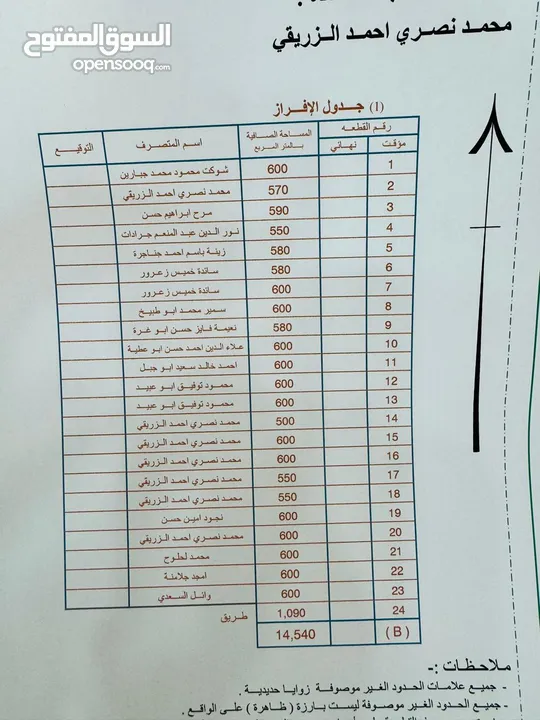 السوق المفتوح
opensooq.com
محمد نصري احمد الزريقي
(1) جدول الإفراز
رقم القطعه المساحة الصافية بالمتر المربع اسم المتصرف التوقيع
مؤقت نهائي
1 600 شوكت محمود محمد جبارين
2 570 محمد نصري احمد الزريقي
3 590 مرح ابراهيم حسن
4 550 نور الدين عبد المنعم جرادات
5 580 زينة باسم احمد جناجرة
6 580 ساندة خميس زعرور
7 600 ساندة خميس زعرور
8 600 سمير محمد ابو طبيخ
9 580 نعيمة فايز حسن ابو غرة
10 600 علاء الدين احمد حسن ابو عطية
11 600 احمد خالد سعيد ابو جبل
12 600 محمود توفيق ابو عبيد
13 600 محمود توفيق ابو عبيد
14 500 محمد نصري احمد الزريقي
15 600 محمد نصري احمد الزريقي
16 600 محمد نصري احمد الزريقي
17 550 محمد نصري احمد الزريقي
18 550 محمد نصري احمد الزريقي
19 600 نجود امين حسن
20 600 محمد نصري احمد الزريقي
21 600 محمد لحلوح
22 600 امجد جلامنة
23 600 وائل السعدي
24 1,090 طريق
(B) 14,540
ملاحظات :-
- جميع علامات الحدود الغير موصوفة زوايا حديدية .
- جميع الحدود الغير موصوفة ليست بارزة ( ظاهرة ) على الواقع .